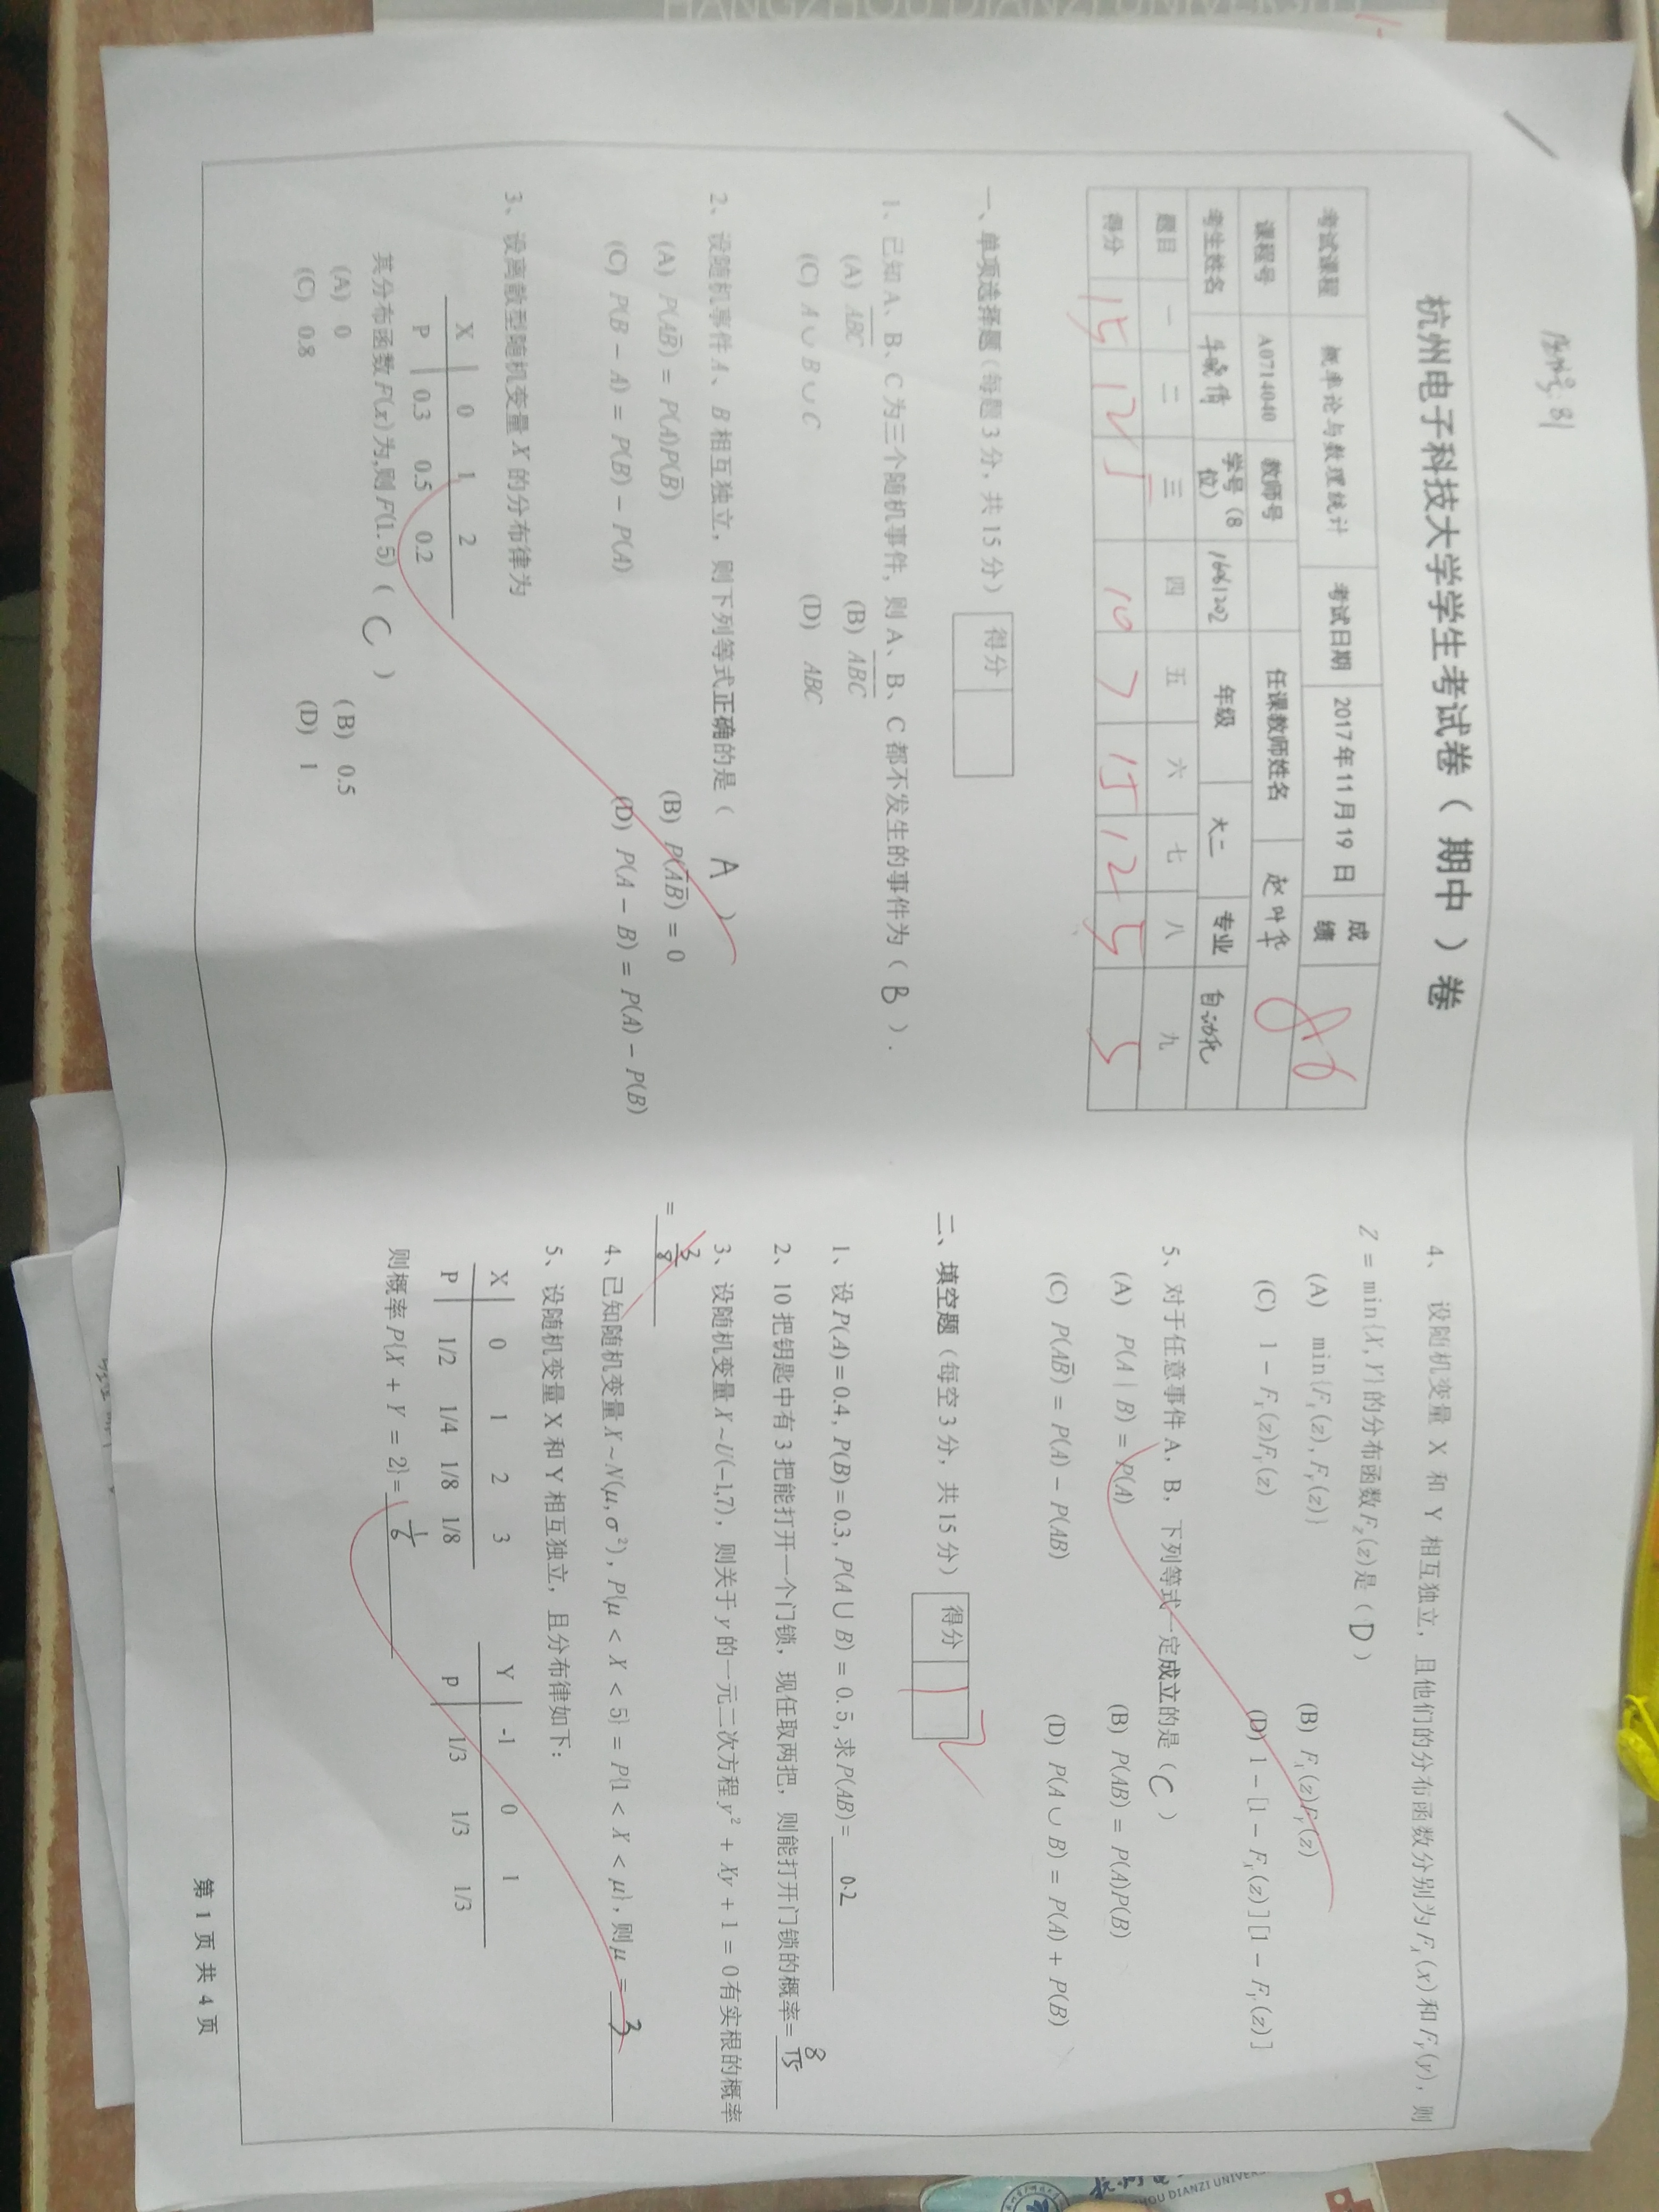 座位号:81
杭州电子科技大学学生考试卷（ 期中 ）卷
考试课程 概率论与数理统计 考试日期 2017年11月19日 成绩 86
课程号 A0714040 教师号 任课教师姓名 赵叶华
考生姓名 牛晓倩 学号（8位） 16061202 年级 大二 专业 自动化
题目 一 二 三 四 五 六 七 八 九
得分 15 12 5 10 7 15 12 5 5
一、单项选择题（每题3分，共15分） 得分
1、已知A、B、C为三个随机事件, 则A、B、C都不发生的事件为（ B ）.
(A) \overline{ABC} (B) \overline{A}\overline{B}\overline{C}
(C) A∪B∪C (D) ABC
2、设随机事件A、B相互独立，则下列等式正确的是（ A ）
(A) P(AB̅) = P(A)P(B̅) (B) P(A̅B̅) = 0
(C) P(B − A) = P(B) − P(A) (D) P(A − B) = P(A) − P(B)
3、设离散型随机变量X的分布律为
X 0 1 2
P 0.3 0.5 0.2
其分布函数F(x)为,则F(1.5)（ C ）
(A) 0 (B) 0.5
(C) 0.8 (D) 1
4、 设随机变量 X 和 Y 相互独立，且他们的分布函数分别为F_X(x)和F_Y(y)，则
Z = min{X, Y}的分布函数F_Z(z)是（ D ）
(A) min{F_X(z), F_Y(z)} (B) F_X(z)F_Y(z)
(C) 1 − F_X(z)F_Y(z) (D) 1 − [1 − F_X(z)][1 − F_Y(z)]
5、对于任意事件A，B，下列等式一定成立的是（ C ）
(A) P(A | B) = P(A) (B) P(AB) = P(A)P(B)
(C) P(AB̅) = P(A) − P(AB) (D) P(A ∪ B) = P(A) + P(B)
二、填空题（每空3分，共15分） 得分 12
1、设P(A)=0.4, P(B)=0.3, P(A∪B) = 0.5, 求P(AB)= 0.2
2、10把钥匙中有3把能打开一个门锁，现任取两把，则能打开门锁的概率= 8/15
3、设随机变量X~U(−1,7)，则关于y的一元二次方程y² + Xy + 1 = 0有实根的概率
= 3/8
4、已知随机变量X~N(μ, σ²)，P{μ < X < 5} = P{1 < X < μ}, 则μ = 3
5、设随机变量X和Y相互独立，且分布律如下：
X 0 1 2 3 Y -1 0 1
P 1/2 1/4 1/8 1/8 p 1/3 1/3 1/3
则概率P{X + Y = 2}= 1/6
第 1 页 共 4 页